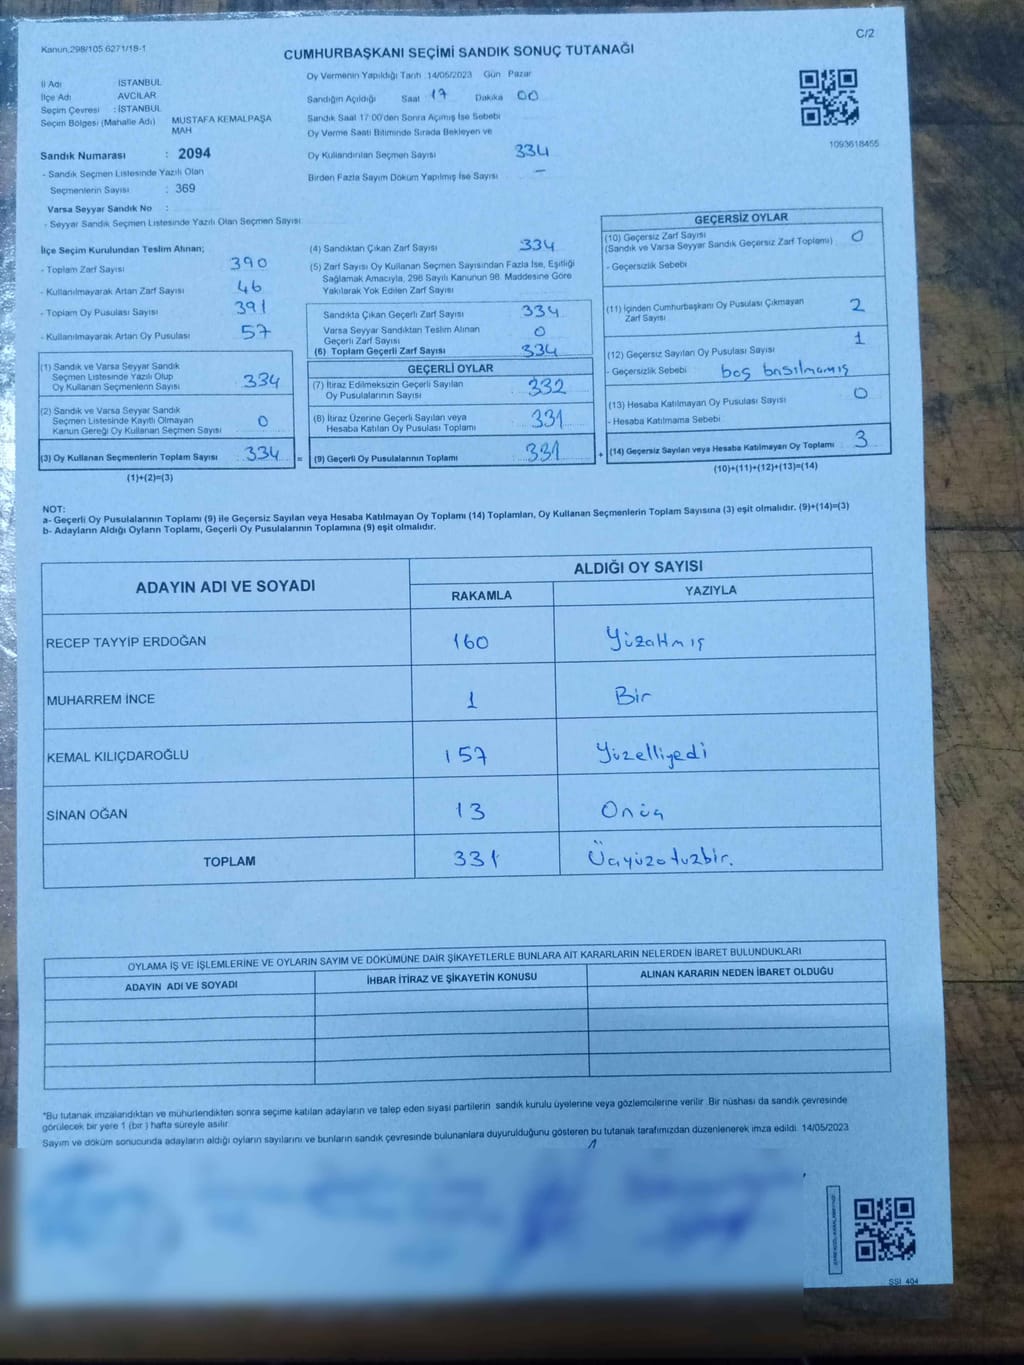 Kanun,298/105 6271/18-1
C/2
CUMHURBAŞKANI SEÇİMİ SANDIK SONUÇ TUTANAĞI
İl Adı : İSTANBUL
İlçe Adı : AVCILAR
Seçim Çevresi : İSTANBUL
Seçim Bölgesi (Mahalle Adı) : MUSTAFA KEMALPAŞA MAH
Sandık Numarası : 2094
- Sandık Seçmen Listesinde Yazılı Olan
Seçmenlerin Sayısı : 369
Varsa Seyyar Sandık No :
- Seyyar Sandık Seçmen Listesinde Yazılı Olan Seçmen Sayısı
Oy Vermenin Yapıldığı Tarih 14/05/2023 Gün Pazar
Sandığın Açıldığı Saat 17 Dakika 00
Sandık Saat 17:00'den Sonra Açılmış İse Sebebi
Oy Verme Saati Bitiminde Sırada Bekleyen ve
Oy Kullandırılan Seçmen Sayısı 334
Birden Fazla Sayım Döküm Yapılmış İse Sayısı –
1093618455
İlçe Seçim Kurulundan Teslim Alınan;
- Toplam Zarf Sayısı 390
- Kullanılmayarak Artan Zarf Sayısı 46
- Toplam Oy Pusulası Sayısı 391
- Kullanılmayarak Artan Oy Pusulası 57
(1) Sandık ve Varsa Seyyar Sandık
Seçmen Listesinde Yazılı Olup
Oy Kullanan Seçmenlerin Sayısı 334
(2) Sandık ve Varsa Seyyar Sandık
Seçmen Listesinde Kayıtlı Olmayan
Kanun Gereği Oy Kullanan Seçmen Sayısı 0
(3) Oy Kullanan Seçmenlerin Toplam Sayısı 334 =
(1)+(2)=(3)
(4) Sandıktan Çıkan Zarf Sayısı 334
(5) Zarf Sayısı Oy Kullanan Seçmen Sayısından Fazla İse, Eşitliği
Sağlamak Amacıyla, 298 Sayılı Kanunun 98. Maddesine Göre
Yakılarak Yok Edilen Zarf Sayısı
Sandıkta Çıkan Geçerli Zarf Sayısı 334
Varsa Seyyar Sandıktan Teslim Alınan
Geçerli Zarf Sayısı 0
(6) Toplam Geçerli Zarf Sayısı 334
GEÇERLİ OYLAR
(7) İtiraz Edilmeksizin Geçerli Sayılan
Oy Pusulalarının Sayısı 332
(8) İtiraz Üzerine Geçerli Sayılan veya
Hesaba Katılan Oy Pusulası Toplamı 331
(9) Geçerli Oy Pusulalarının Toplamı 331 +
GEÇERSİZ OYLAR
(10) Geçersiz Zarf Sayısı
(Sandık ve Varsa Seyyar Sandık Geçersiz Zarf Toplamı) 0
- Geçersizlik Sebebi
(11) İçinden Cumhurbaşkanı Oy Pusulası Çıkmayan
Zarf Sayısı 2
(12) Geçersiz Sayılan Oy Pusulası Sayısı 1
- Geçersizlik Sebebi boş basılmamış
(13) Hesaba Katılmayan Oy Pusulası Sayısı 0
- Hesaba Katılmama Sebebi
(14) Geçersiz Sayılan veya Hesaba Katılmayan Oy Toplamı 3
(10)+(11)+(12)+(13)=(14)
NOT:
a- Geçerli Oy Pusulalarının Toplamı (9) ile Geçersiz Sayılan veya Hesaba Katılmayan Oy Toplamı (14) Toplamları, Oy Kullanan Seçmenlerin Toplam Sayısına (3) eşit olmalıdır. (9)+(14)=(3)
b- Adayların Aldığı Oyların Toplamı, Geçerli Oy Pusulalarının Toplamına (9) eşit olmalıdır.
ADAYIN ADI VE SOYADI
ALDIĞI OY SAYISI
RAKAMLA YAZIYLA
RECEP TAYYİP ERDOĞAN 160 Yüzaltmış
MUHARREM İNCE 1 Bir
KEMAL KILIÇDAROĞLU 157 Yüzelliyedi
SİNAN OĞAN 13 Onüç
TOPLAM 331 Üçyüzotuzbir.
OYLAMA İŞ VE İŞLEMLERİNE VE OYLARIN SAYIM VE DÖKÜMÜNE DAİR ŞİKAYETLERLE BUNLARA AİT KARARLARIN NELERDEN İBARET BULUNDUKLARI
ADAYIN ADI VE SOYADI İHBAR İTİRAZ VE ŞİKAYETİN KONUSU ALINAN KARARIN NEDEN İBARET OLDUĞU
*Bu tutanak imzalandıktan ve mühürlendikten sonra seçime katılan adayların ve talep eden siyasi partilerin sandık kurulu üyelerine veya gözlemcilerine verilir. Bir nüshası da sandık çevresinde
görülecek bir yere 1 (bir) hafta süreyle asılır.
Sayım ve döküm sonucunda adayların aldığı oyların sayılarını ve bunların sandık çevresinde bulunanlara duyurulduğunu gösteren bu tutanak tarafımızdan düzenlenerek imza edildi. 14/05/2023
SSI_404